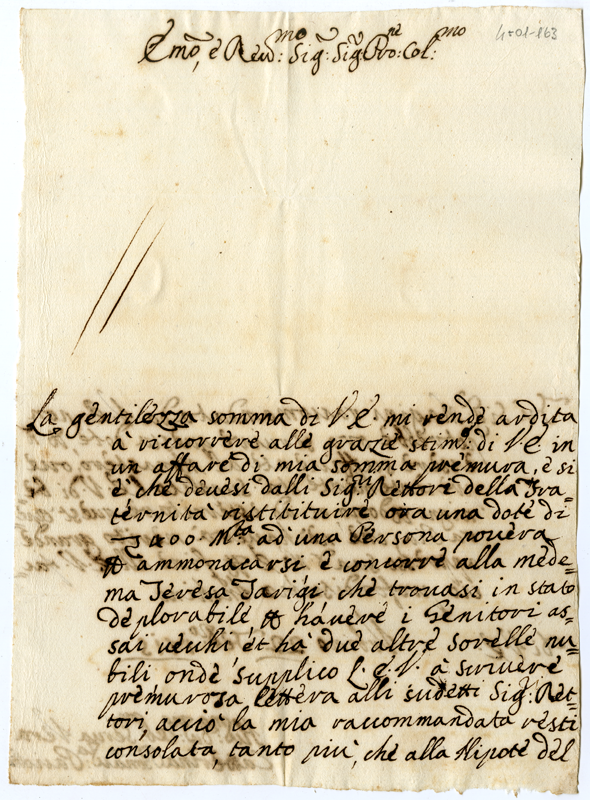 4=01-163
Emõ, è Reu:mo Sig: Sig: Pro:ne Col:mo
La gentilezza somma di V.E. mi rende ardita
à riccorrere alle grazie stim: di VE in
un affare di mia somma premura, e si
è che devesi dalli Sig:ri Rettori della Fra=
ternità ristituire ora una dote di
400. M:ta ad una Persona povera
ammonacarsi è concorre alla mede=
ma Teresa Tarigi che trovasi in stato
deplorabile hàvere i Genitori as=
sai vecchi et hà due altre Sorelle nu=
bili onde supplico L. e V. à scrivere
premurosa lettera alli sudetti Sig:ri Ret=
tori, acciò la mia raccommandata resti
consolata, tanto più, che alla Nipote del